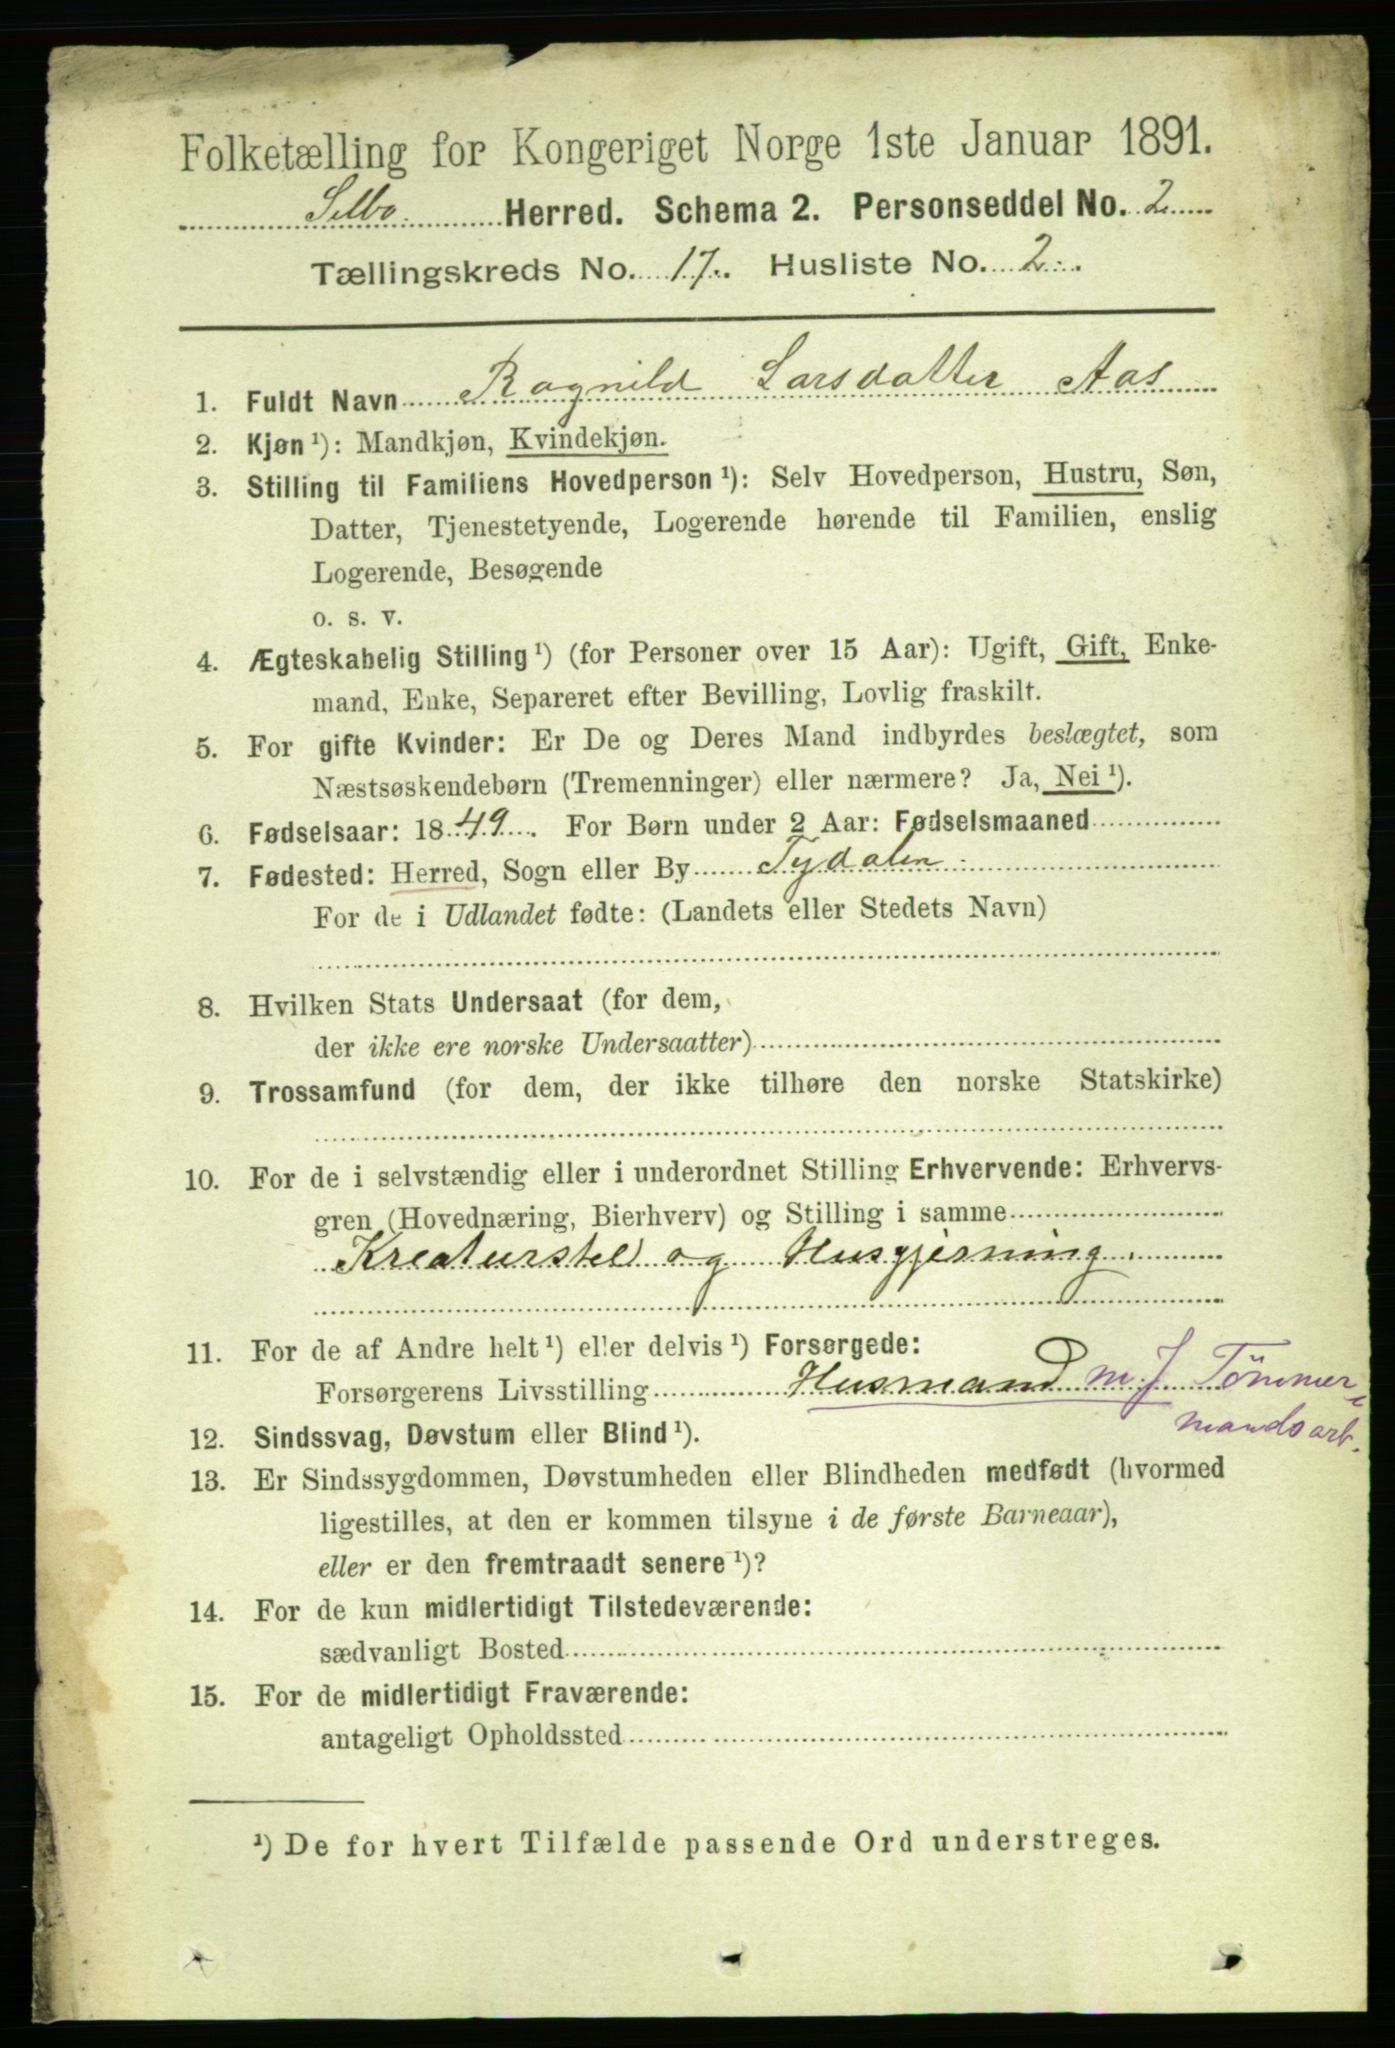 Folketælling for Kongeriget Norge 1ste Januar 1891.
Selbo Herred. Schema 2. Personseddel No. 2
Tællingskreds No. 17. Husliste No. 2.
1. Fuldt Navn Ragnild Larsdatter Aas
2. Kjøn ¹): Mandkjøn, Kvindekjøn.
3. Stilling til Familiens Hovedperson ¹): Selv Hovedperson, Hustru, Søn,
Datter, Tjenestetyende, Logerende hørende til Familien, enslig
Logerende, Besøgende
o. s. v.
4. Ægteskabelig Stilling ¹) (for Personer over 15 Aar): Ugift, Gift, Enke-
mand, Enke, Separeret efter Bevilling, Lovlig fraskilt.
5. For gifte Kvinder: Er De og Deres Mand indbyrdes beslægtet, som
Næstsøskendebørn (Tremenninger) eller nærmere? Ja, Nei ¹).
6. Fødselsaar: 1849. For Børn under 2 Aar: Fødselsmaaned
7. Fødested: Herred, Sogn eller By Tydalen
For de i Udlandet fødte: (Landets eller Stedets Navn)
8. Hvilken Stats Undersaat (for dem,
der ikke ere norske Undersaatter)
9. Trossamfund (for dem, der ikke tilhøre den norske Statskirke)
10. For de i selvstændig eller i underordnet Stilling Erhvervende: Erhvervs-
gren (Hovednæring, Bierhverv) og Stilling i samme
Kreaturstel og Husgjerning.
11. For de af Andre helt ¹) eller delvis ¹) Forsørgede:
Forsørgerens Livsstilling Husmand m J Tömmer-
mandsarb.
12. Sindssvag, Døvstum eller Blind ¹).
13. Er Sindssygdommen, Døvstumheden eller Blindheden medfødt (hvormed
ligestilles, at den er kommen tilsyne i de første Barneaar),
eller er den fremtraadt senere ¹)?
14. For de kun midlertidigt Tilstedeværende:
sædvanligt Bosted
15. For de midlertidigt Fraværende:
antageligt Opholdssted
¹) De for hvert Tilfælde passende Ord understreges.